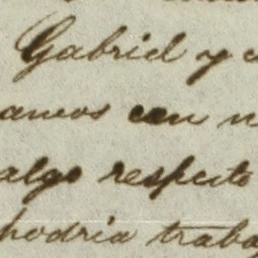 Gabriel y
amos con
algo respecto
podria traba